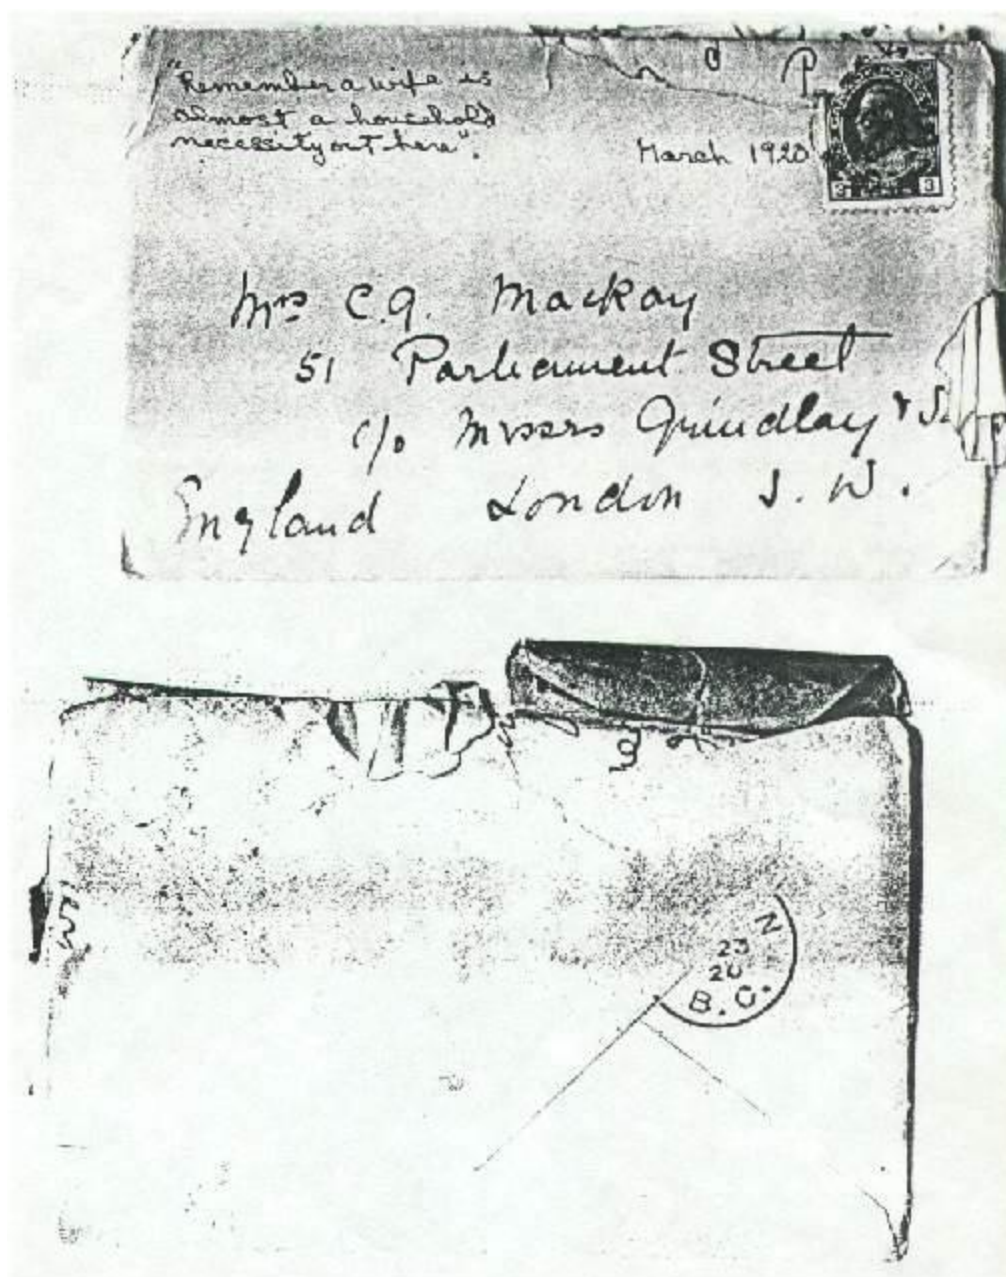 "Remember a wife is
almost a household
necessity out here".
March 1920
3 3
Mrs C.G. Mackay
51 Parliament Street
c/o Messrs Grindlay &
England London S. W.
N
23
20
B.C.